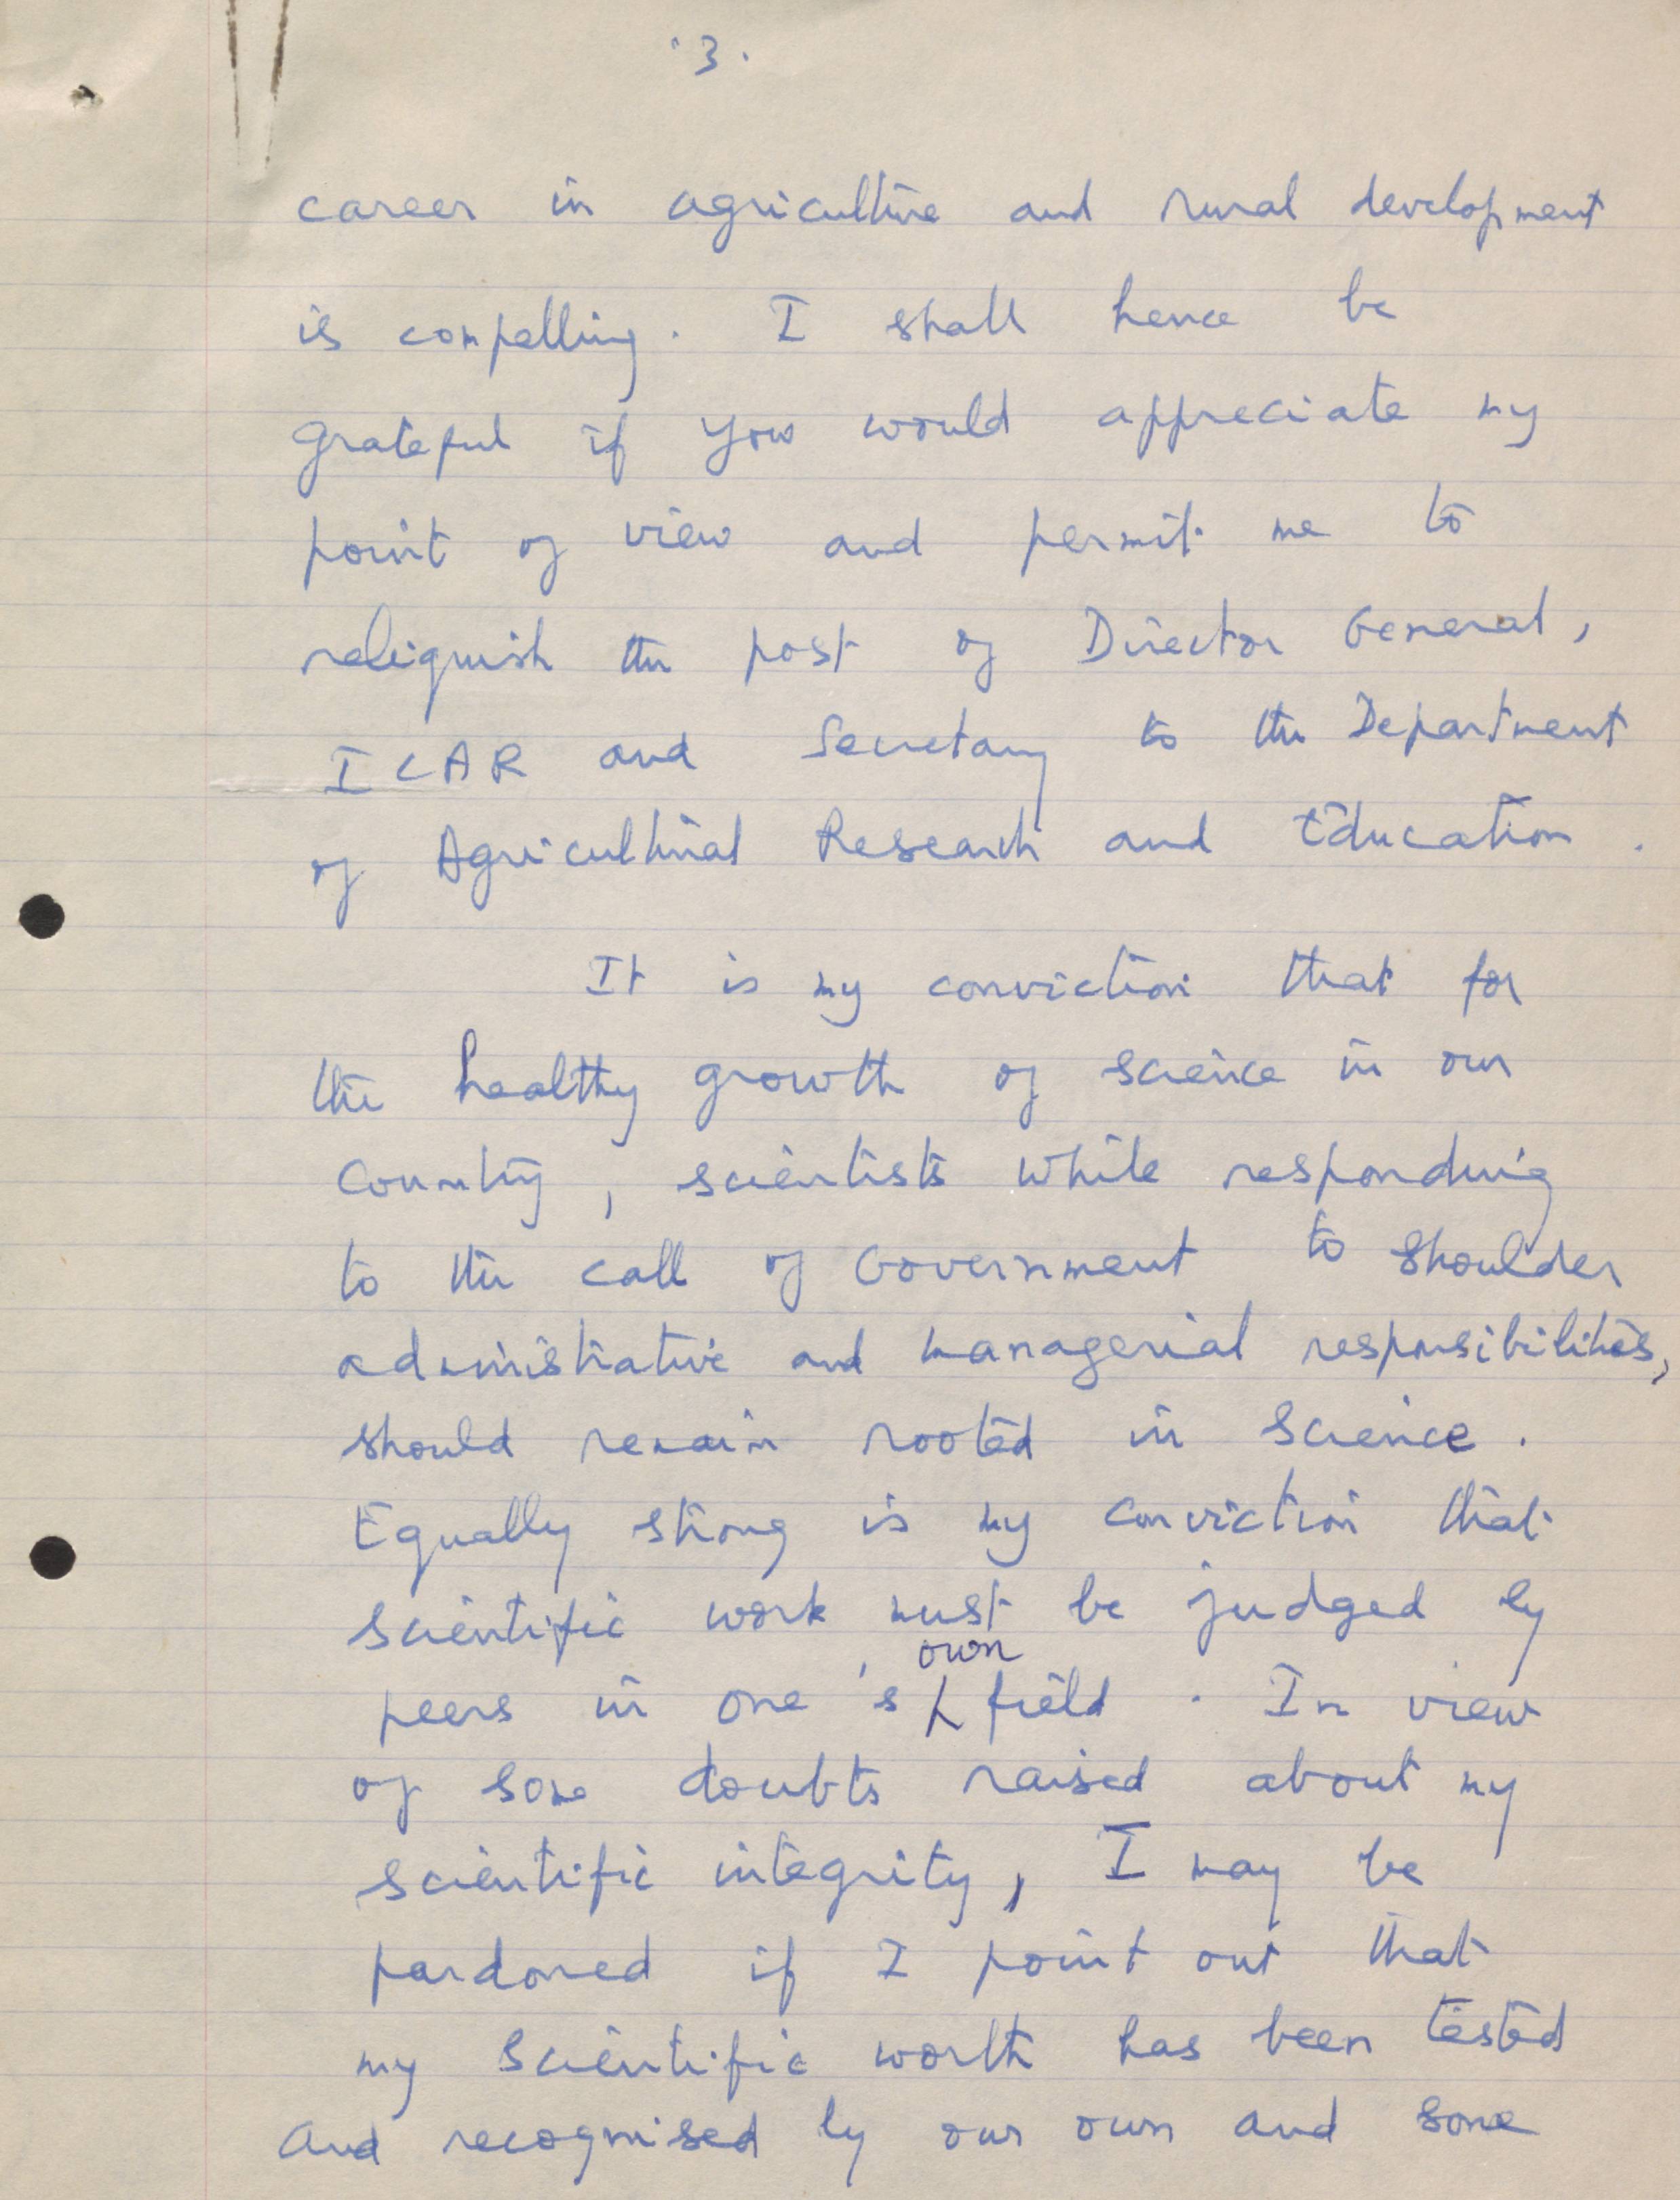 . 3 .
career in agriculture and rural development
is compelling. I shall hence be
grateful if you would appreciate my
point of view and permit me to
reliquish the post of Director General,
ICAR and Secretary to the Department
of Agricultural Research and Education.
It is my conviction that for
the healthy growth of science in our
country, scientists while responding
to the call of Government to shoulder
administrative and managerial responsibilities,
should remain rooted in science.
Equally strong is my conviction that
scientific work must be judged by
own
peers in one's field. In view
of some doubts raised about my
scientific integrity, I may be
pardoned if I point out that
my scientific worth has been tested
and recognised by our own and some